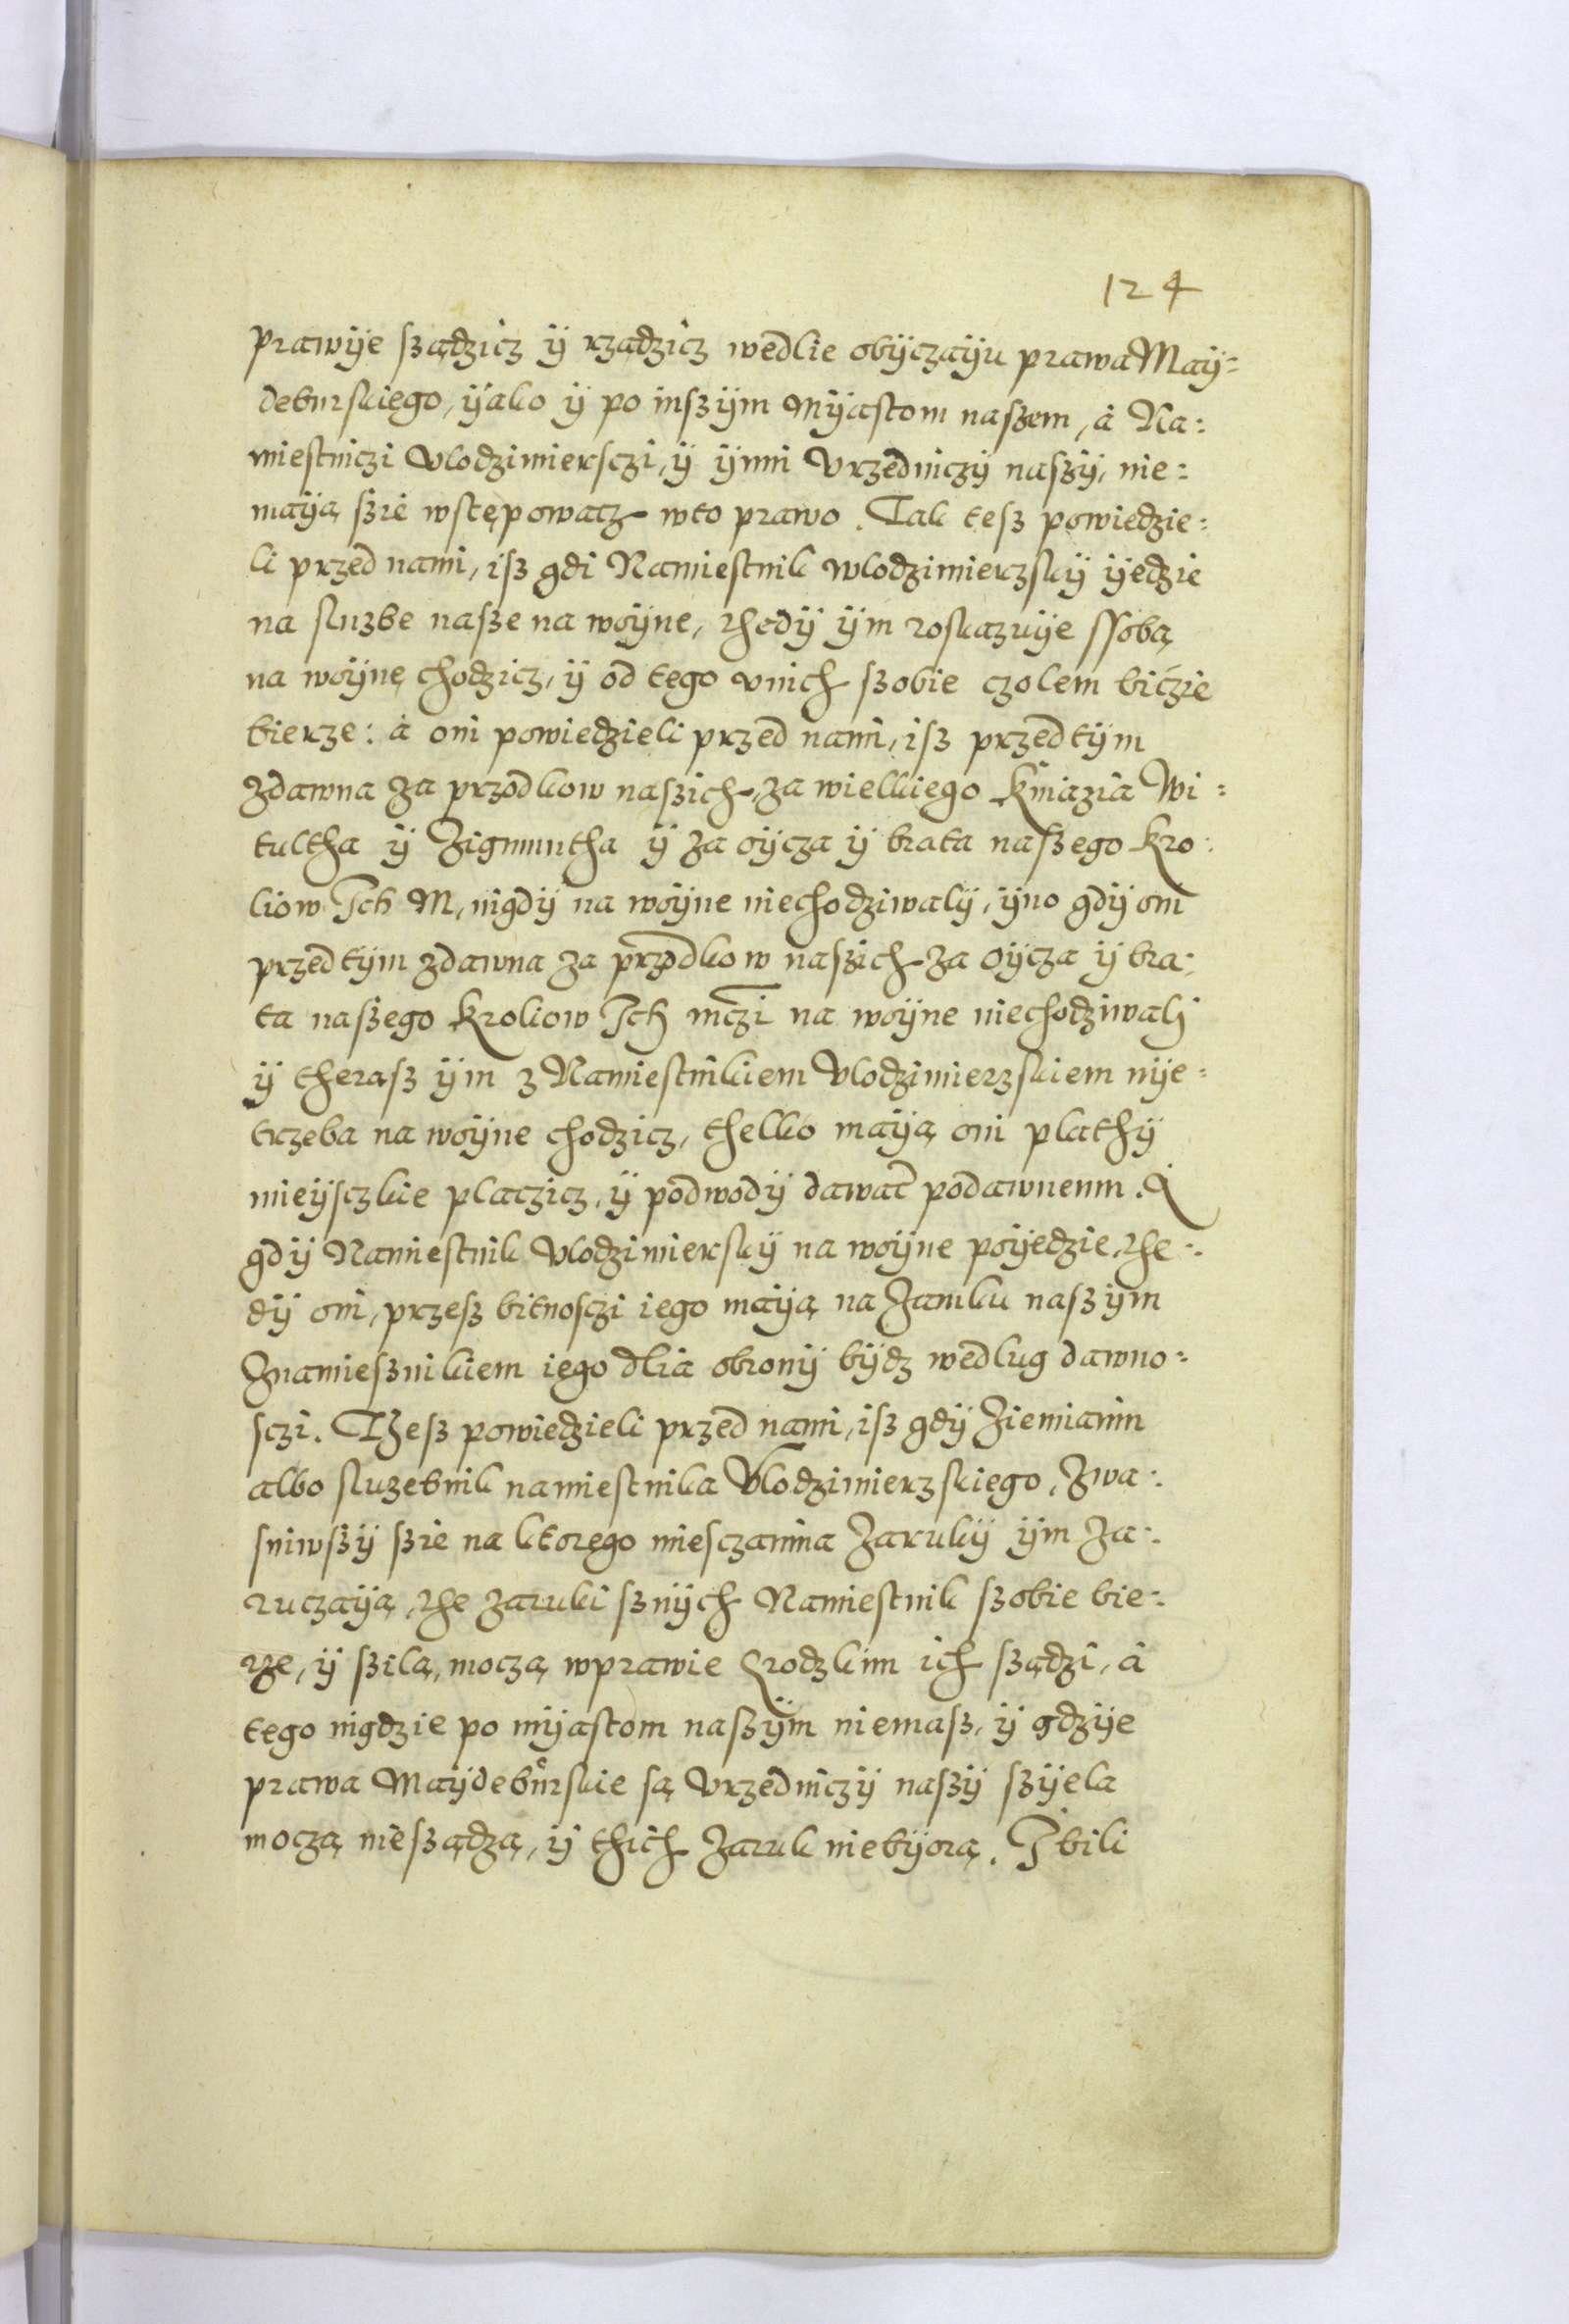 124
prawÿe sządzicz ÿ rządzicz wedlie obÿczaÿu prawa Maÿ=
deburskiego, ÿako ÿ po inszÿm Mÿastom naszem, á Na=
miestniczi Vlodzimiersczi, ÿ ÿnni Vrzedniczÿ naszÿ, nie=
maÿą szie wstępowacz wto prawo. Tak tesz powiedzie=
li przed nami, isz gdi Namiestnik Wlodzimierzskÿ ÿedzie
na sluzbe nasze na woÿne, thedÿ ÿm roskazuÿe ssobą
na woÿnę chodzicz, ÿ od tego vnich szobie czolem biczie
bierze: á oni powiedzieli przed nami, isz przed tÿm
zdawna za przodkow naszich, za wielkiego Kniazia Wi=
tultha ÿ Zigmuntha ÿ za oÿcza ÿ brata naszego Kro=
liow Ich M, nigdÿ na woÿne niechodziwalÿ, ÿno gdÿ oni
przed tÿm zdawna za przodkow naszich za oÿcza ÿ bra=
ta naszego Kroliow Ich mczi na woÿne niechodziwali
ÿ therasz ÿm z Namiestnikiem Vlodzimierzskiem nÿe=
trzeba na woÿne chodzicz, thelko maÿą oni plathÿ
mieÿsczkie placzicz, ÿ podwodÿ dawac podawnemu. A
gdÿ Namiestnik Vlodzimierskÿ na woÿne poÿedzie, the=
dÿ oni, przesz bitnosczi iego maÿą na Zamku naszÿm
Znamiesznikiem iego dlia obronÿ bÿdz wedlug dawno=
sczi. Thesz powiedzieli przed nami, isz gdÿ Ziemianin
albo sluzebnik namiestnika Vlodzimierzskiego, Zwa=
sniwszÿ szie na ktorego miesczanina Zarukÿ ÿm Za=
ruczaÿą, the zaruki sznÿch Namiestnik szobie bie=
rze, ÿ szilą, moczą wprawie Grodzkim ich sządzi, á
tego nigdzie po mÿastom naszÿm niemasz, ÿ gdzÿe
prawa Maÿdeburskie są Vrzedniczÿ naszÿ szÿela
moczą niesządzą, ÿ thich Zaruk niebÿorą. I bili